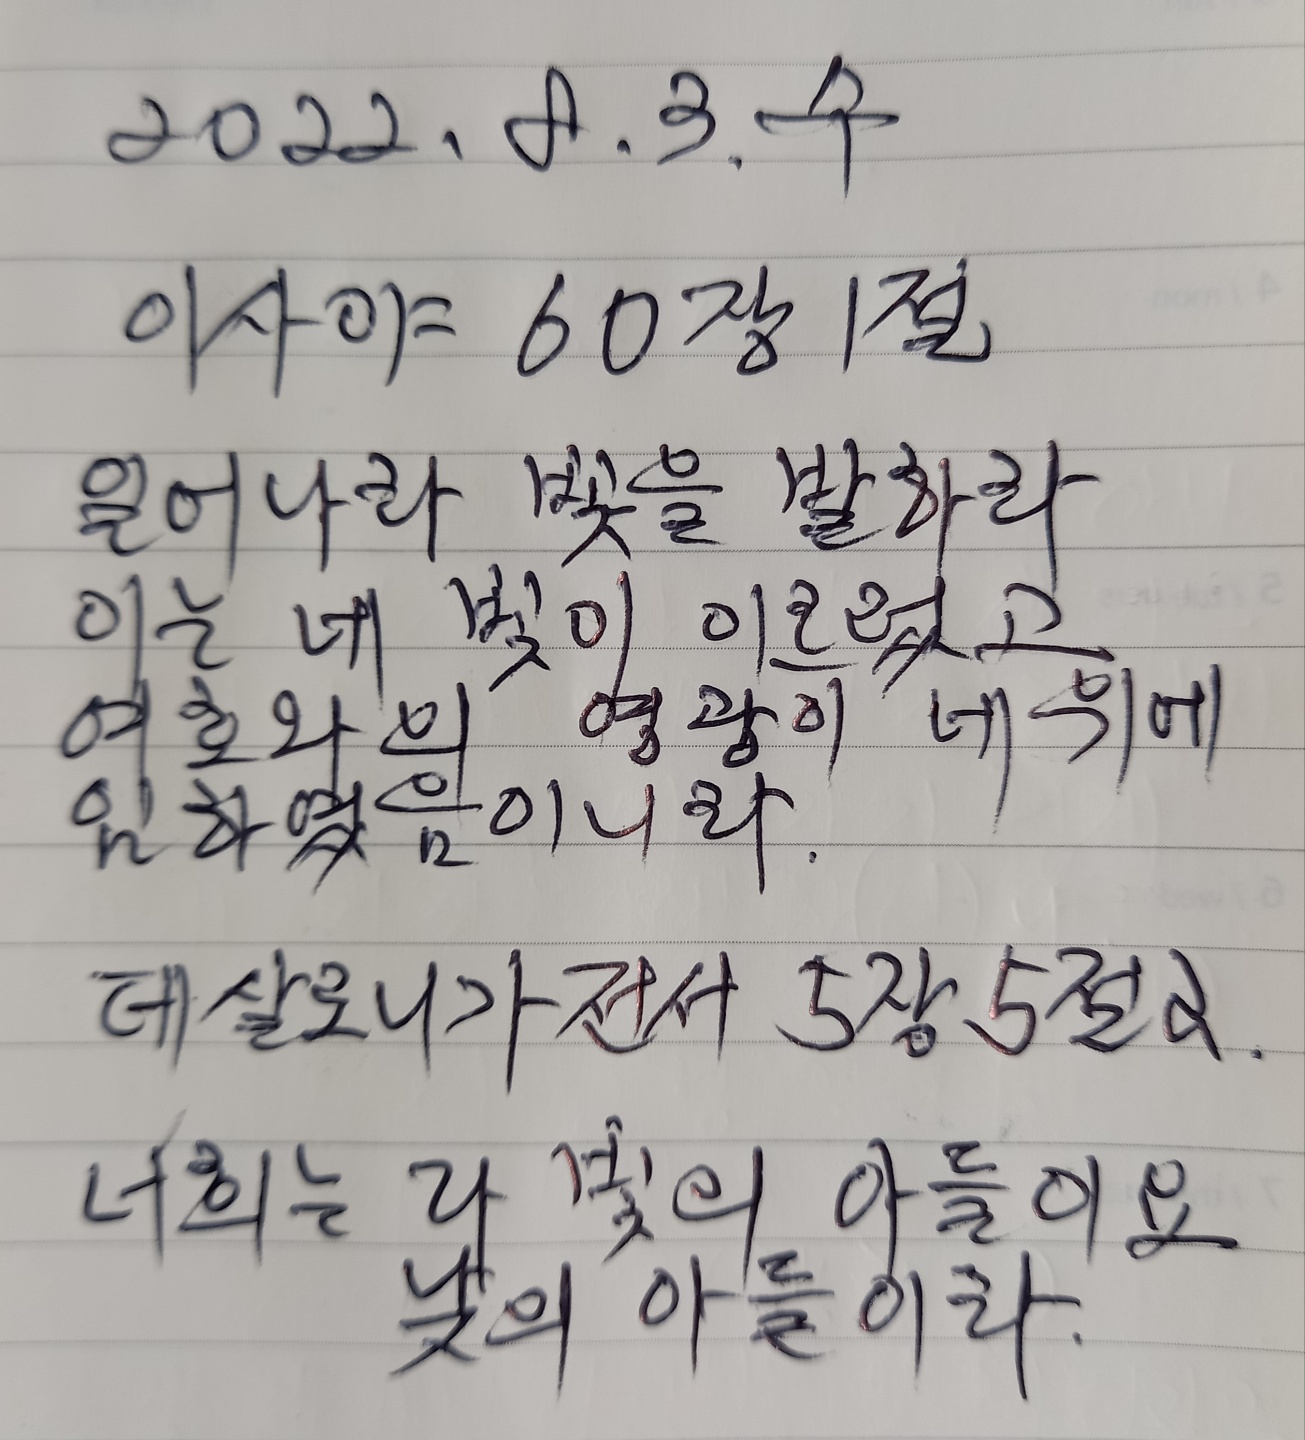 2022. 8. 3. 수
이사야= 60장 1절
일어나라 빛을 발하라
이는 네 빛이 이르렀고
여호와의 영광이 네 위에
임하였음이니라.
데살로니가전서 5장 5절
너희는 다 빛의 아들이요
낮의 아들이라.